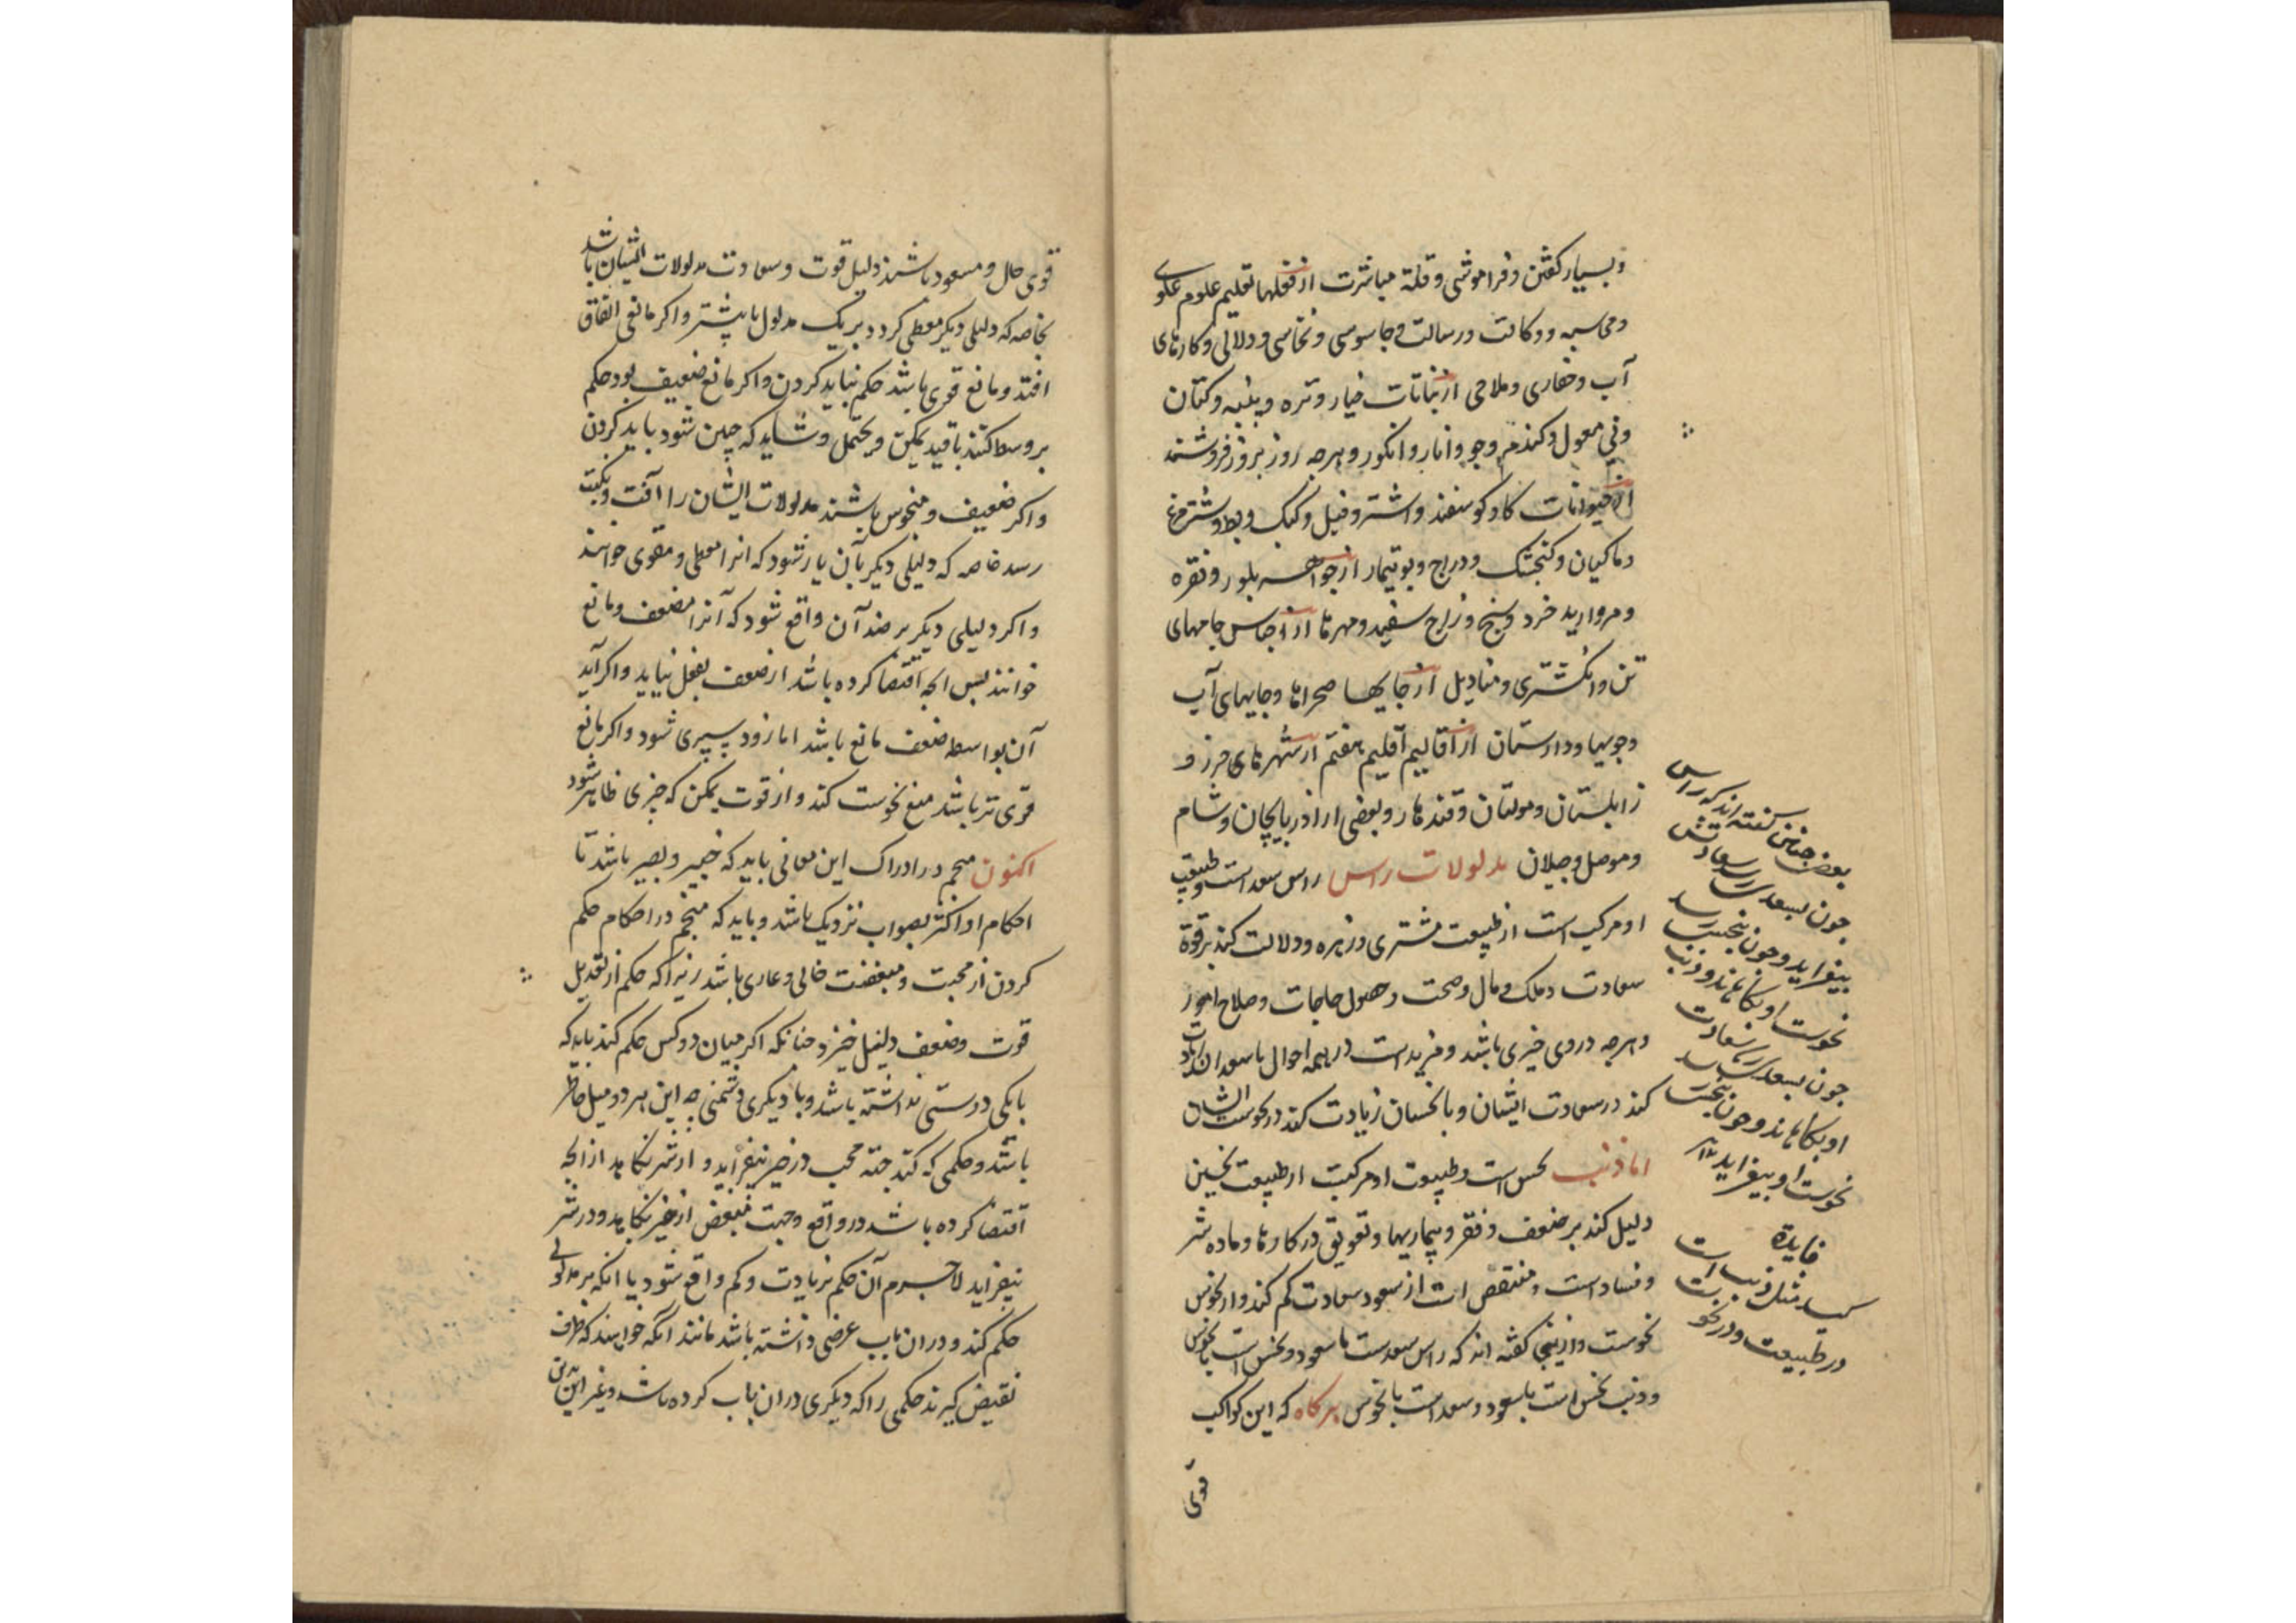 و بسیار گفتن و فراموشی و قلة مباشرت از فعلها تعلیم علوم علوی
و محاسبه و وکالت و رسالت و جاسوسی و نخاسی و دلالی و کارهای
آب و حفاری و ملاحی از نباتات خیار و تره و پنبه و کتان
و نی معمول و کندم و جو و انار و انکور و هرچه روز بروز فروشند
از حیوانات کاو کوسفند و اشتر و فیل و کبک و بط و شترمرغ
و ماکیان و کنجشک و دراج و بوتیمار از جواهر بلور و نقره
و مروارید خرد و سنج و زاج سفید و مهرها از اجناس جامهای
تن و انکشتری و منادیل از جایها صحراها و جایهای آب
و جویها و دارستان از اقالیم اقلیم هفتم از شهرهای خرز و
زابلستان و مولتان و قندهار و بعضی از اذربایجان و شام
و موصل و جیلان مدلولات راس راس سعد است و طبیعت
او مرکب است از طبیعت مشتری و زهره و دلالت کند بر قوة
سعادت و ملک و مال و صحت و حصول حاجات و صلاح امور
و هرچه در وی خیری باشد و مزید است در همه احوال با سعدان زیادت
کند در سعادت ایشان و با نحسان زیادت کند در نحوست ایشان
اما ذنب نحس است و طبیعت او مرکبت از طبیعت نحسین
دلیل کند بر ضعف و فقر و بیماریها و تعویق در کارها و ماده شر
و فساد است و منتقص است از سعود سعادت کم کند و از نحوس
نحوست و ازینجی کفته اند که راس سعدست با سعود و نحس است با نحوس
و ذنب نحس است با سعود و سعد است با نحوس هرکاه که این کواکب
قوی
بعضی چنانین کفته اند که راس
چون بسعدی رسد سعادتش
بیفزاید و چون بنحس رسد
نحوست او بکاهاند و ذنب
چون بسعدی رسد سعادت
او بکاهاند و چون بنحس رسد
نحوست او بیفزاید ۱۲
فایدة
کید مثل ذنب است
در طبیعت و در نحوست
قوی حال و مسعود باشند دلیل قوت و سعادت مدلولات ایشان باشد
بخاصه که دلیلی دیکر معطی کردد بر یک مدلول یا بیشتر و اکر مانعی اتفاق
افتد و مانع قوی باشد حکم نباید کردن و اکر مانع ضعیف بود حکم
بر وسط کنند با قید یمکن و یحتمل و شاید که چنین شود باید کردن
و اکر ضعیف و منحوس باشند مدلولات ایشان را آفت و نکبت
رسد خاصه که دلیلی دیکر بآن یار شود که انرا معطی و مقوی خوانند
و اکر دلیلی دیکر بر ضد آن واقع شود که آنرا مضعف و مانع
خوانند پس انچه اقتضا کرده باشد از ضعف بفعل نیاید و اکر آید
آن بواسطه ضعف مانع باشد اما زود سپری شود و اکر مانع
قوی تر باشد منع نحوست کند و از قوت یمکن که چیزی ظاهر شود
اکنون منجم در ادراک این معانی باید که خبیر و بصیر باشد تا
احکام او اکثر بصواب نزدیک باشد و باید که منجم در احکام حکم
کردن از محبت و مبغضت خالی و عاری باشد زیرا که حکم از تعدیل
قوت و ضعف دلیل خیزد چنانکه اکر میان دو کس حکم کند باید که
با یکی دوستی نداشته باشد و با دیکری دشمنی چه این هر دو میل خاطر
باشد و حکمی که کند جهة محب در خیر بیفزاید و از شر بکاهد از انچه
اقتضا کرده باشد در واقع و جهت مبغض از خیر بکاهد و در شر
بیفزاید لاجرم آن حکم بزیادت و کم واقع شود یا انکه بر مدلولی
حکم کند و در ان باب غرضی داشته باشد مانند انکه خواهند که طرف
نقیض کیرند حکمی را که دیکری در ان باب کرده باشد و غیر این